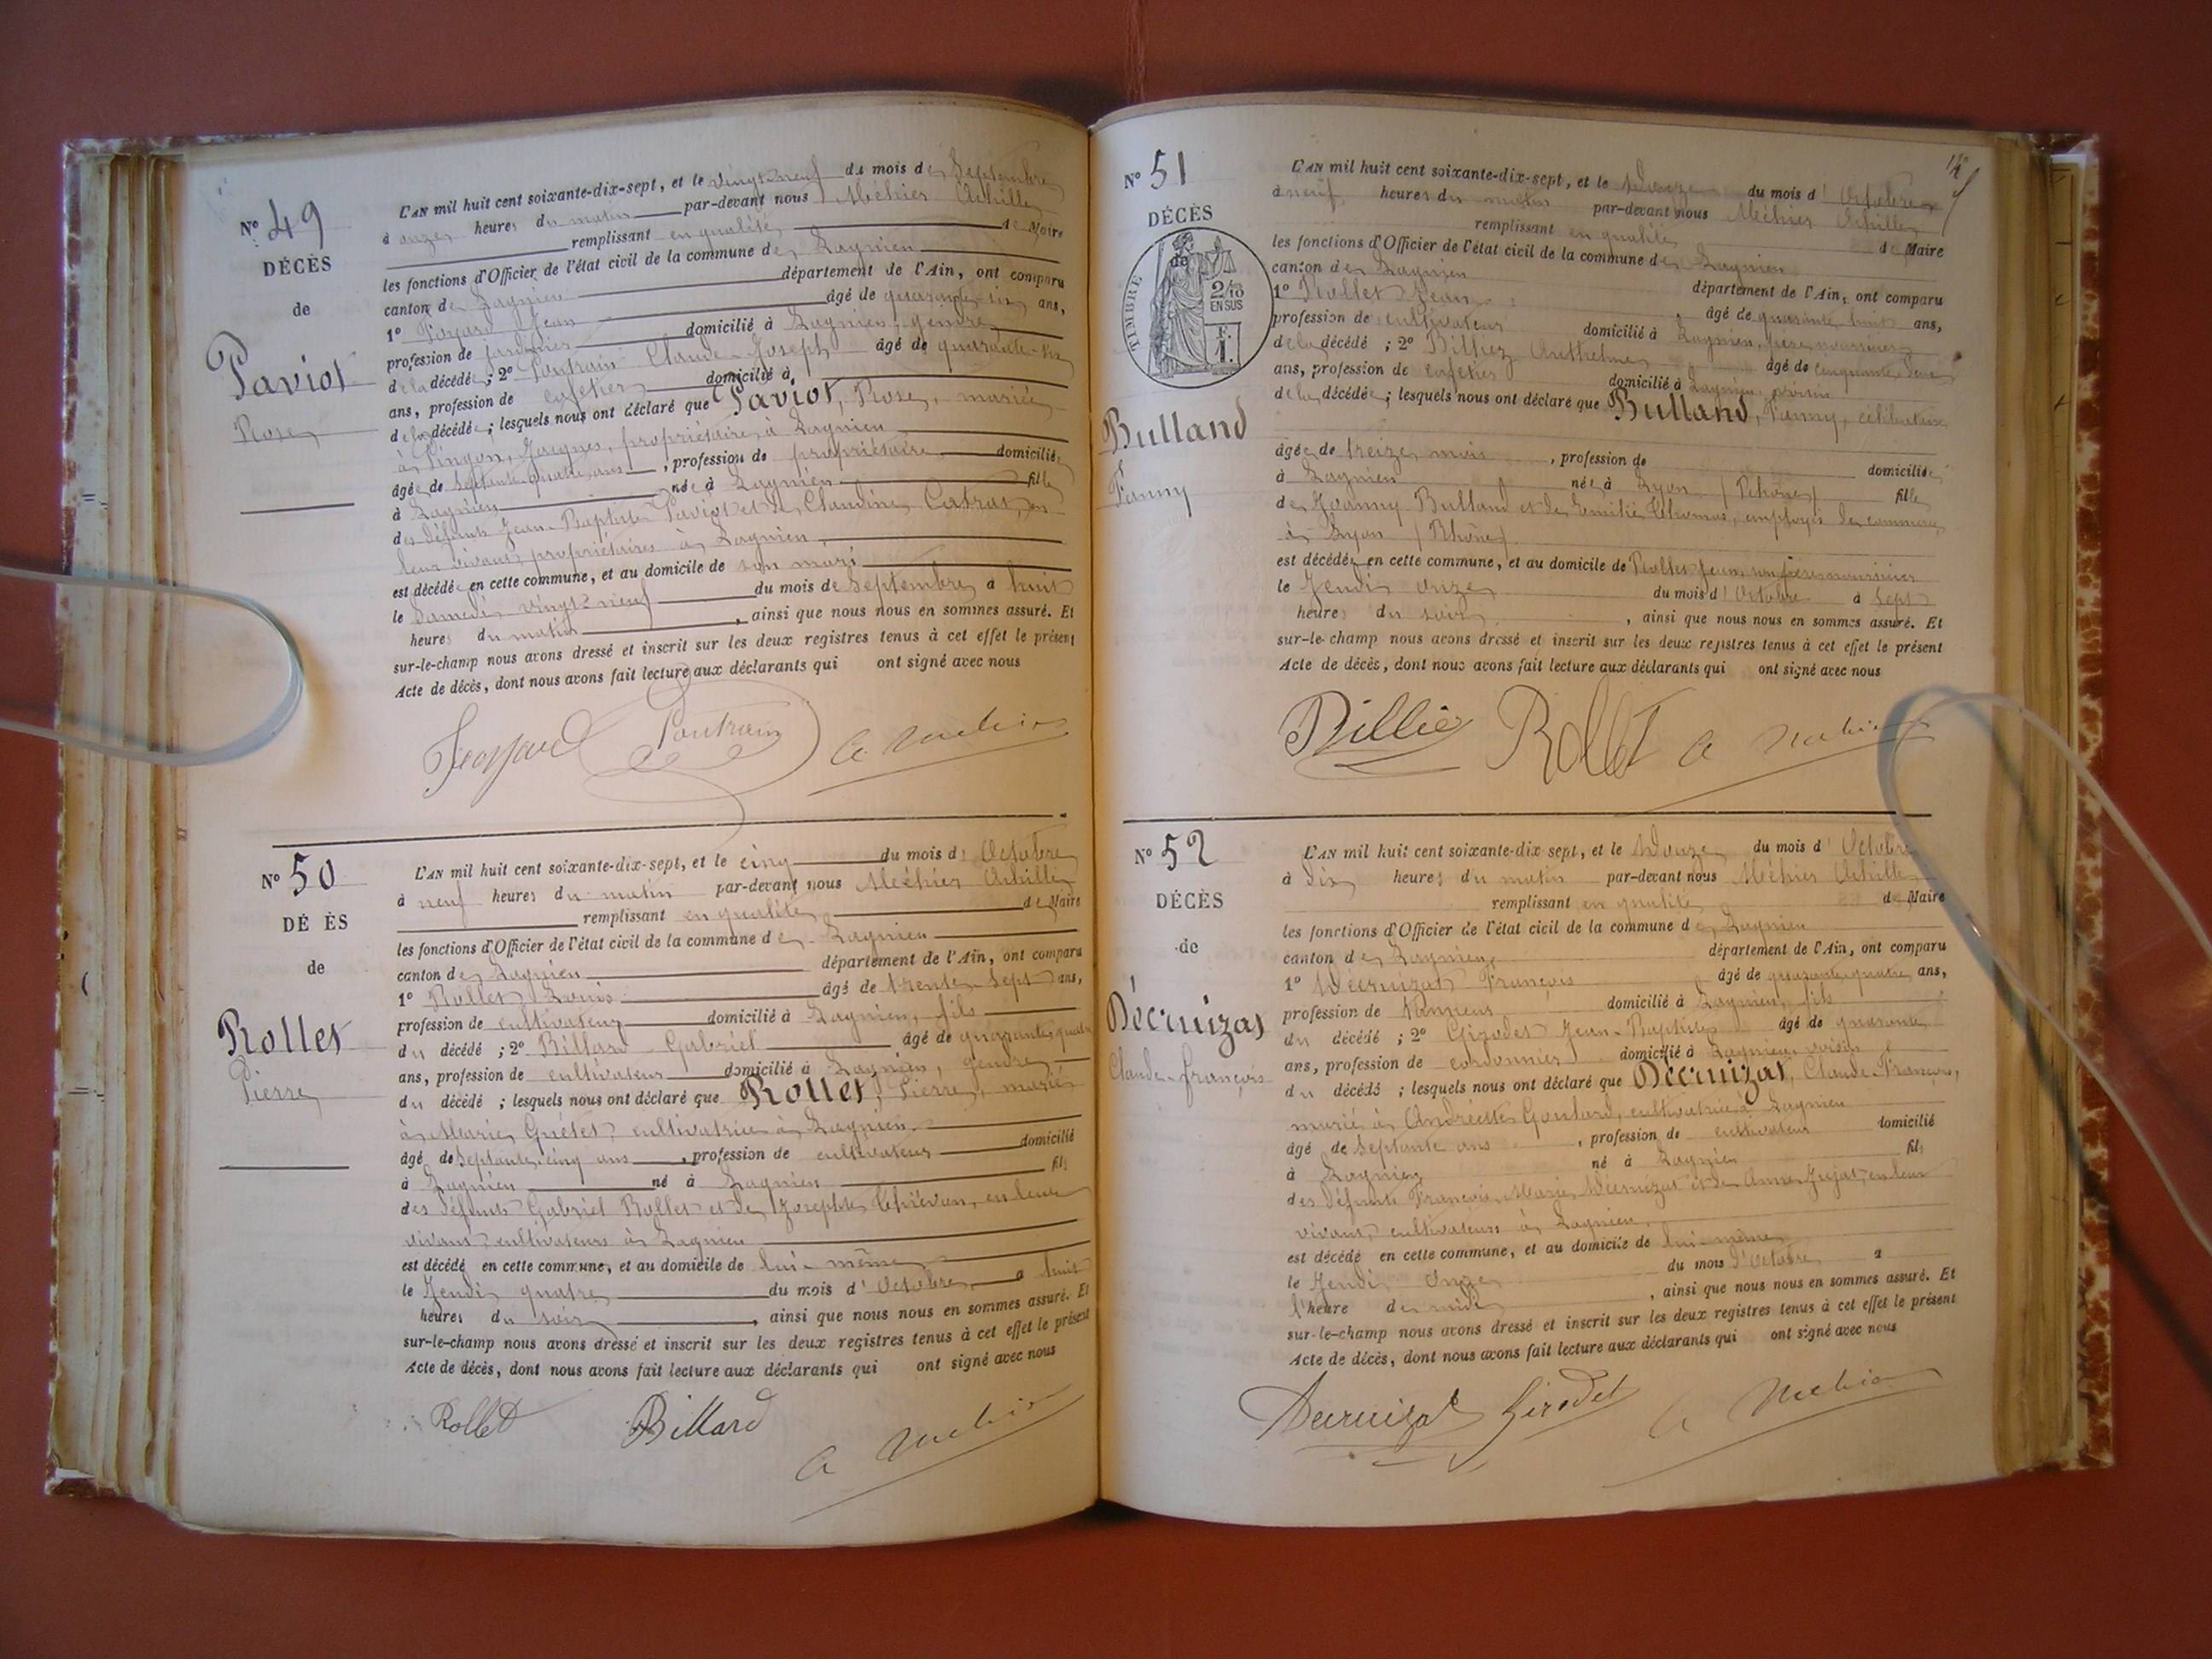 N° 49
DÉCÈS
de
Paviot
Rose
L'AN mil huit cent soixante-dix-sept, et le vingt-neuf du mois de Septembre
à onze heures du matin par-devant nous Méhier Achille
remplissant en qualité de Maire
les fonctions d'Officier de l'état civil de la commune de Lagnieu
canton de Lagnieu département de l'Ain, ont comparu
1° Jean âgé de quarante-six ans,
profession de jardinier domicilié à Lagnieu, gendre
de la décédée ; 2° Poutrain Claude-Joseph âgé de quarante-six
ans, profession de cafetier domicilié à
de la décédée ; lesquels nous ont déclaré que Paviot, Rose, mariée
à Pingon, Jacques, propriétaire à Lagnieu
âgée de septante-quatre ans, profession de propriétaire domiciliée
à Lagnieu née à Lagnieu fille
des défunts Jean-Baptiste Paviot et de Claudine en
leur vivant propriétaires à Lagnieu
est décédée en cette commune, et au domicile de son mari
le Samedi vingt-neuf du mois de Septembre à huit
heures du matin, ainsi que nous nous en sommes assuré. Et
sur-le-champ nous avons dressé et inscrit sur les deux registres tenus à cet effet le présent
Acte de décès, dont nous avons fait lecture aux déclarants qui ont signé avec nous
Poutrain A Méhier
N° 50
DÉ ÈS
de
Rollet
Pierre
L'AN mil huit cent soixante-dix-sept, et le cinq du mois d' Octobre
à neuf heures du matin par-devant nous Méhier Achille
remplissant en qualité de Maire
les fonctions d'Officier de l'état civil de la commune de Lagnieu
canton de Lagnieu département de l'Ain, ont comparu
1° Rollet Louis âgé de trente-sept ans,
profession de cultivateur domicilié à Lagnieu, fils
du décédé ; 2° Billard Gabriel âgé de quarante-quatre
ans, profession de cultivateur domicilié à Lagnieu, gendre
du décédé ; lesquels nous ont déclaré que Rollet, Pierre, marié
à Marie cultivatrice à Lagnieu
âgé de Septante-cinq ans, profession de cultivateur domicilié
à Lagnieu né à Lagnieu fils
des défunts Gabriel Rollet et de Josephte en leur
vivant cultivateurs à Lagnieu
est décédé en cette commune, et au domicile de lui-même
le Jeudi quatre du mois d' Octobre à huit
heures du soir, ainsi que nous nous en sommes assuré. Et
sur-le-champ nous avons dressé et inscrit sur les deux registres tenus à cet effet le présent
Acte de décès, dont nous avons fait lecture aux déclarants qui ont signé avec nous
Rollet Billard A Méhier
N° 51
DÉCÈS
de
TIMBRE
2/10
EN SUS
F.
1.
Bulland
Fanny
L'AN mil huit cent soixante-dix-sept, et le Douze du mois d' Octobre
à neuf heures du matin par-devant nous Méhier Achille
remplissant en qualité de Maire
les fonctions d'Officier de l'état civil de la commune de Lagnieu
canton de Lagnieu département de l'Ain, ont comparu
1° Rollet Jean âgé de quarante-huit ans,
profession de cultivateur domicilié à Lagnieu, père nourricier
de la décédée ; 2° Billiez Anthelme âgé de cinquante-deux
ans, profession de cafetier domicilié à Lagnieu, voisin
de la décédée ; lesquels nous ont déclaré que Bulland, Fanny, célibataire
âgée de treize mois, profession de domiciliée
à Lagnieu née à Lyon (Rhône) fille
de Joanny Bulland et de Emilie Thomas, employés de commerce
à Lyon (Rhône)
est décédée en cette commune, et au domicile de Rollet Jean, son père nourricier
le Jeudi onze du mois d' Octobre à sept
heures du soir, ainsi que nous nous en sommes assuré. Et
sur-le-champ nous avons dressé et inscrit sur les deux registres tenus à cet effet le présent
Acte de décès, dont nous avons fait lecture aux déclarants qui ont signé avec nous
Billiez Rollet A Méhier
N° 52
DÉCÈS
de
Décruizat
Claude-François
L'AN mil huit cent soixante-dix-sept, et le Douze du mois d' Octobre
à dix heures du matin par-devant nous Méhier Achille
remplissant en qualité de Maire
les fonctions d'Officier de l'état civil de la commune de Lagnieu
canton de Lagnieu département de l'Ain, ont comparu
1° Décruizat François âgé de quarante-quatre ans,
profession de domicilié à Lagnieu, fils
du décédé ; 2° Girodet Jean-Baptiste âgé de quarante
ans, profession de cordonnier domicilié à Lagnieu, voisin
du décédé ; lesquels nous ont déclaré que Décruizat, Claude-François,
marié à Andréette Goutard, cultivatrice à Lagnieu
âgé de Septante ans, profession de cultivateur domicilié
à Lagnieu né à Lagnieu fils
des défunts François-Marie Décruizat et de Anne Jujat, en leur
vivant cultivateurs à Lagnieu
est décédé en cette commune, et au domicile de lui-même
le Jeudi Onze du mois d'Octobre à
l'heure de midi, ainsi que nous nous en sommes assuré. Et
sur-le-champ nous avons dressé et inscrit sur les deux registres tenus à cet effet le présent
Acte de décès, dont nous avons fait lecture aux déclarants qui ont signé avec nous
Decruizat Girodet A Méhier